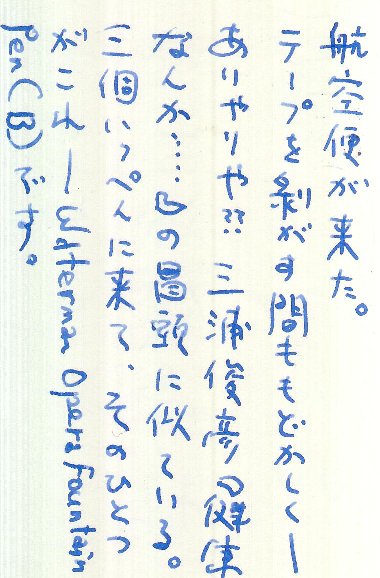 航空便が来た。
テープを剝がす間ももどかしく—
ありやりや?? 三浦俊彦の『健康
なんか……』の冒頭に似ている。
三個いっぺんに来て、そのひとつ
がこれ—Waterman Opera fountain
Pen(B)です。